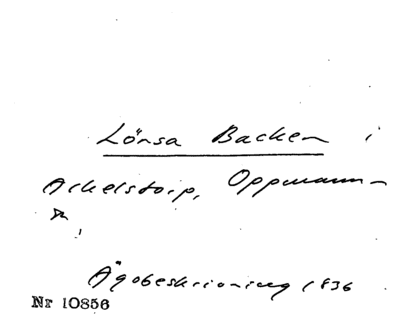 Lönsa Backen i
Arkelstorp, Oppmann-
a
Ägobeskrivning 1836
Nr 10856